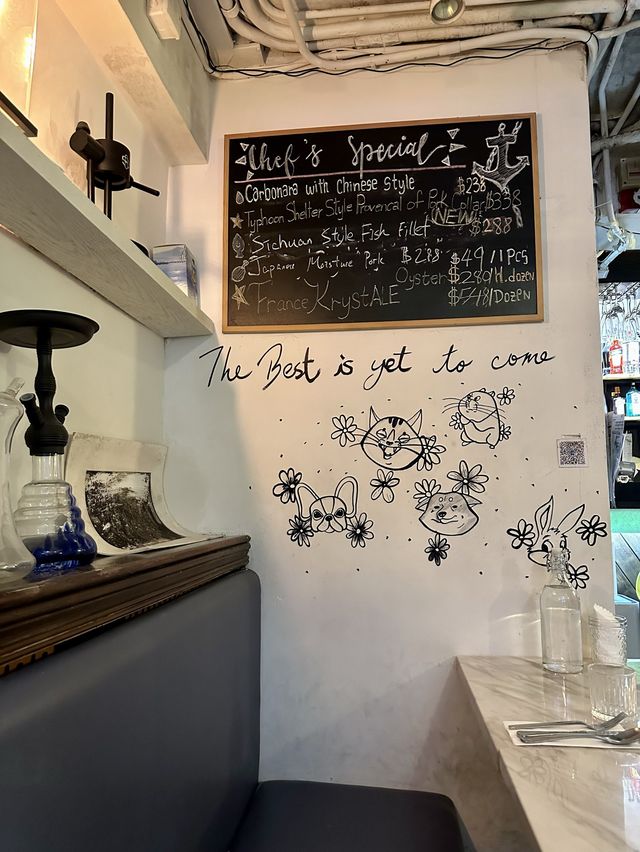 Chef's Special
Carbonara with Chinese Style $238
Typhoon Shelter Style Provencal of Pork Collar $338
NEW
Sichuan Style Fish Fillet $288
Japanese Moisture Pork $288 $49/1Pcs
Oyster $280/H.dozen
France KrystALE $548/Dozen
The Best is yet to come